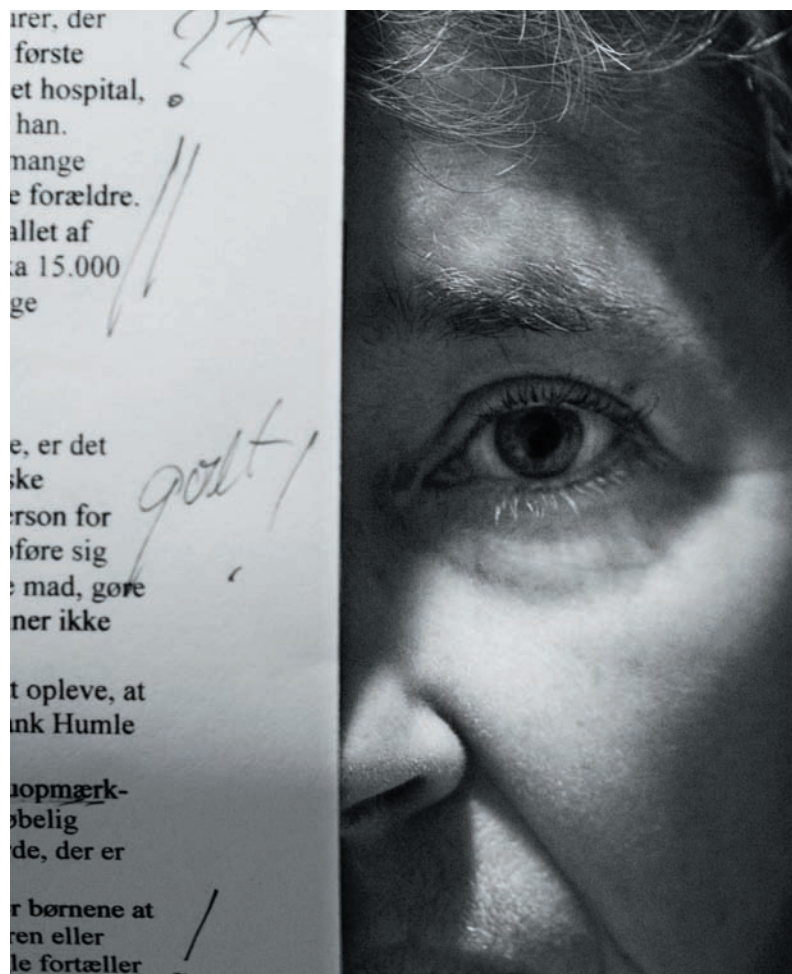 urer, der
første
et hospital,
han.
mange
e forældre.
allet af
ka 15.000
ge
e, er det
ske
erson for
pføre sig
e mad, gøre
ner ikke
t opleve, at
ank Humle
uopmærk-
øbelig
rde, der er
r børnene at
ren eller
le fortæller